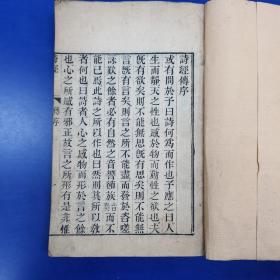 詩經傳序
或有問於予曰詩何爲而作也予應之曰人
生而靜天之性也感於物而動性之欲也夫
既有欲矣則不能無思既有思矣則不能無
言既有言矣則言之所不能盡而發於咨嗟
詠歎之餘者必有自然之音響節族而不
能已焉此詩之所以作也曰然則其所以教
者何也曰詩者人心之感物而形於言之餘
也心之所感有邪正故言之所形有是非惟